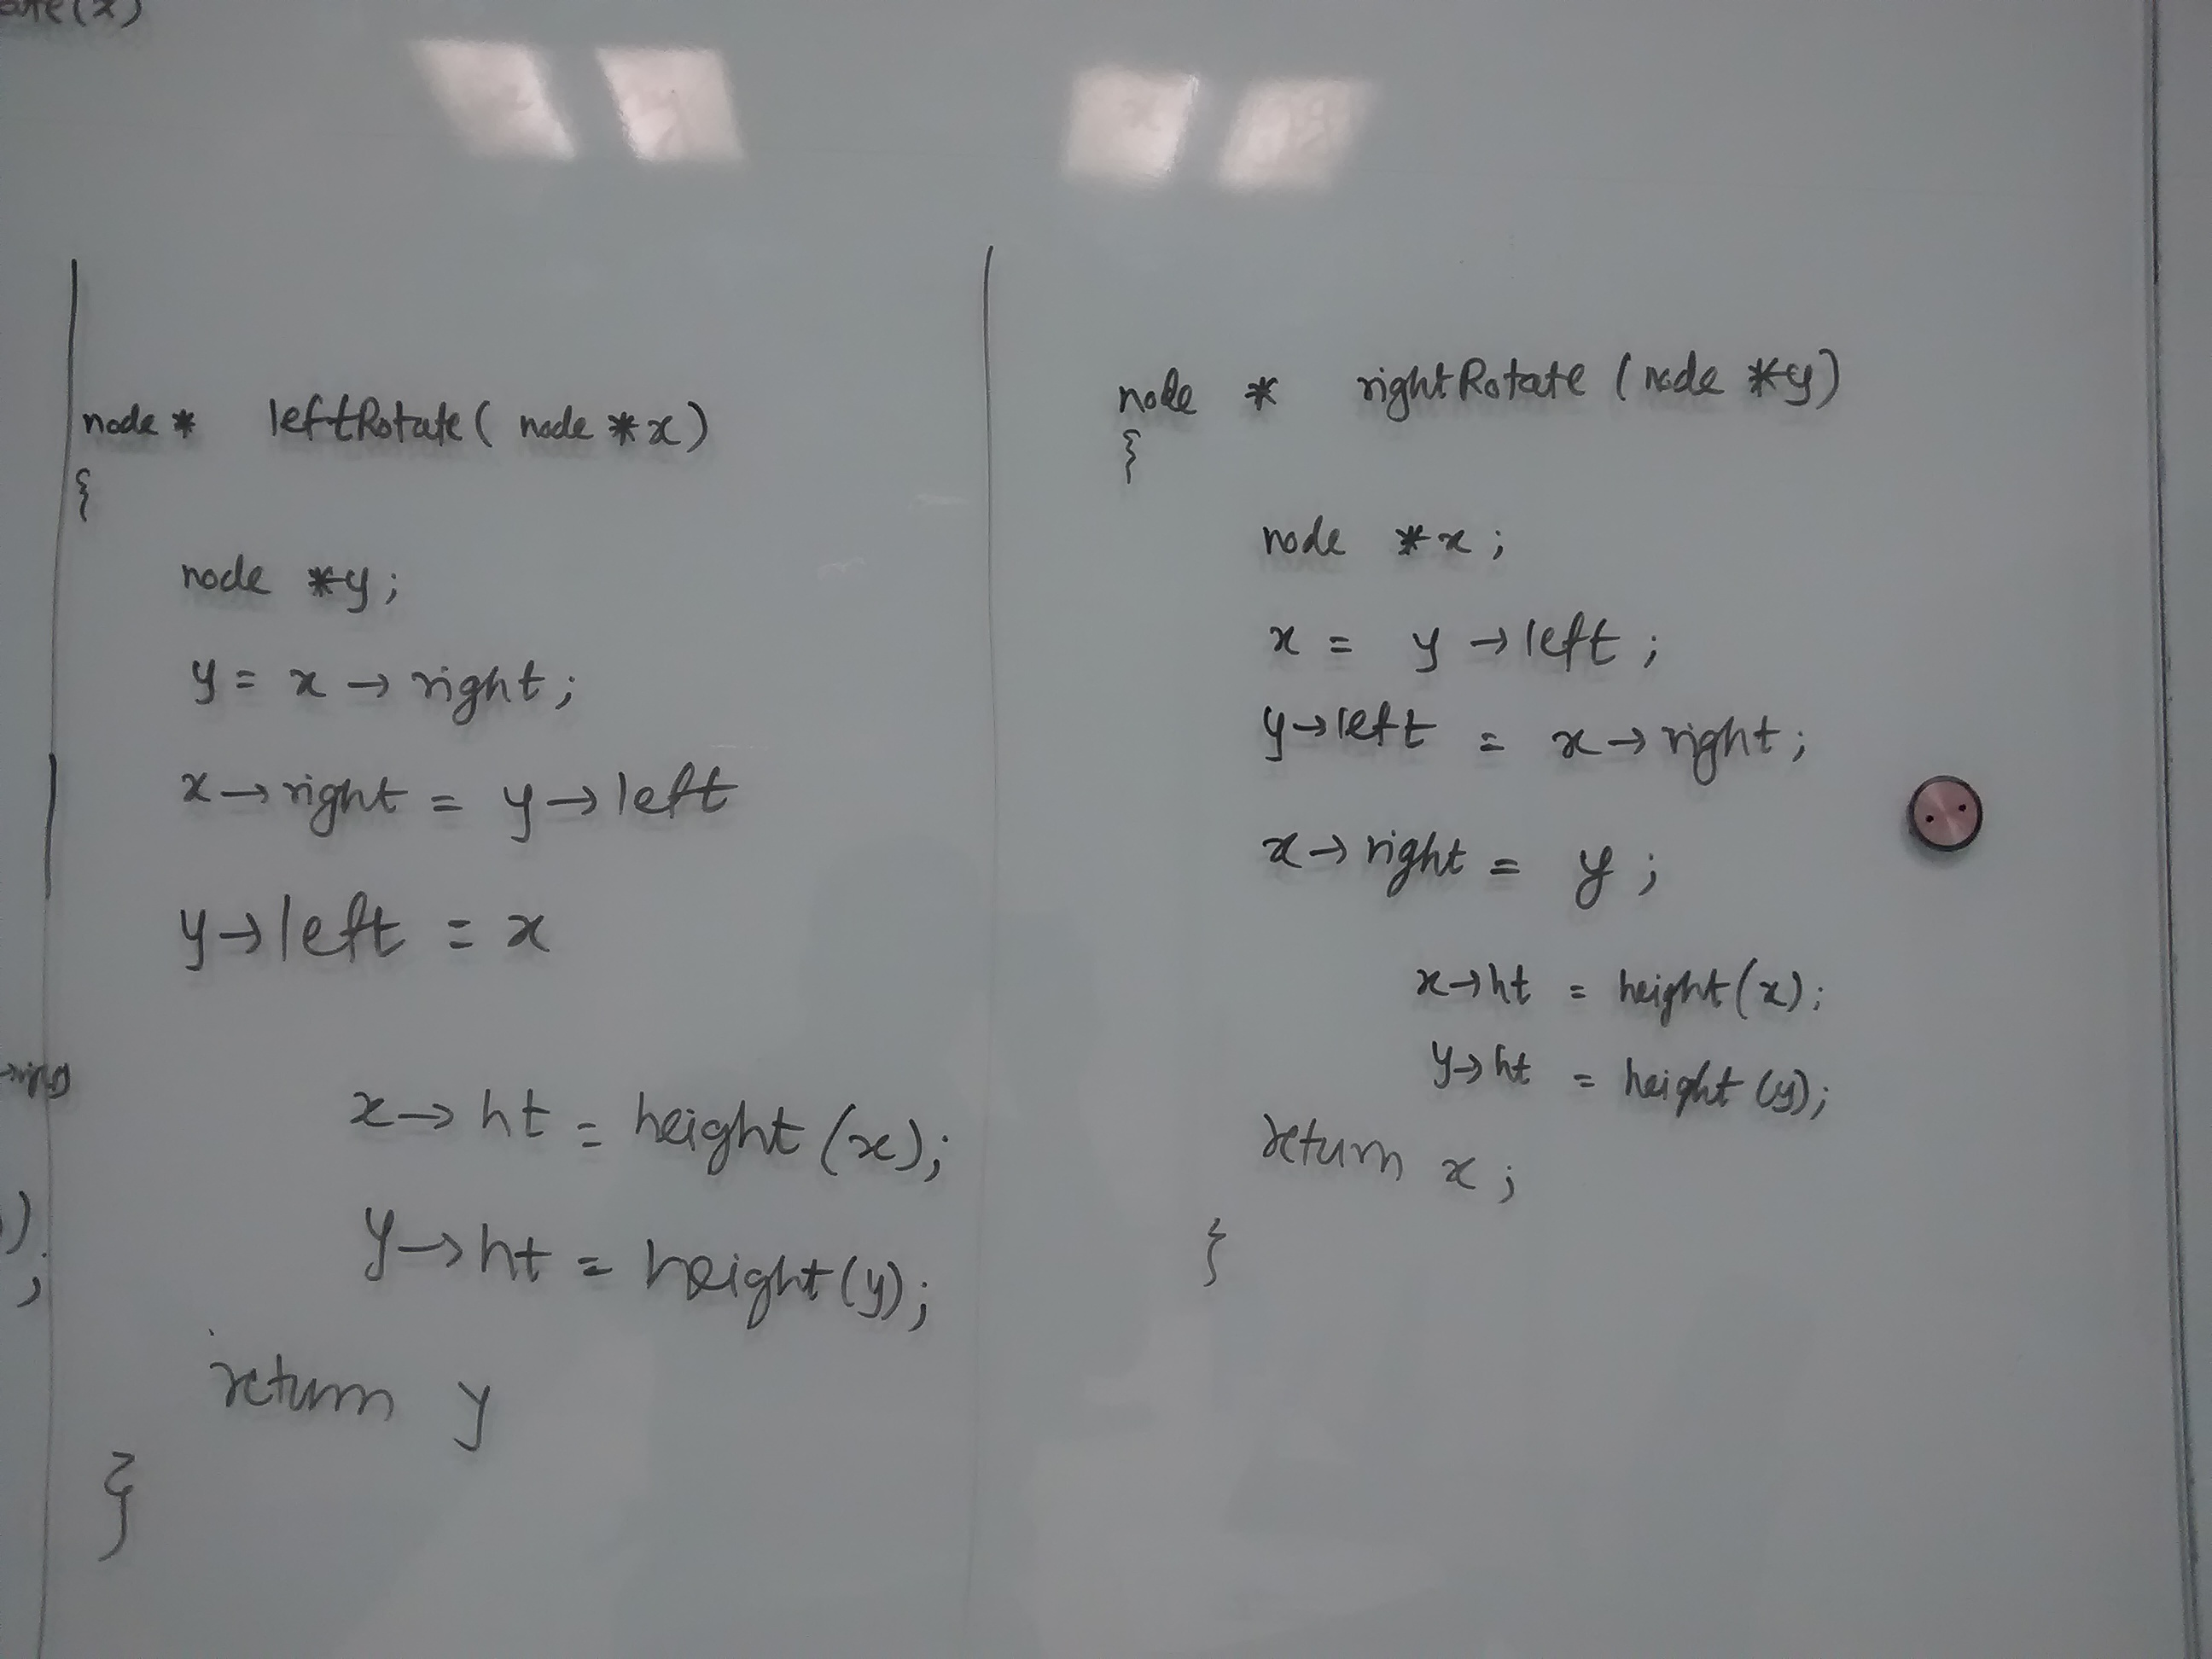 node * leftRotate( node *x)
{
node *y;
y = x → right;
x → right = y → left
y → left = x
x → ht = height (x);
y → ht = height (y);
return y
}
node * rightRotate (node *y)
{
node *x ;
x = y → left ;
y → left = x → right ;
x → right = y ;
x → ht = height (x);
y → ht = height (y);
return x ;
}